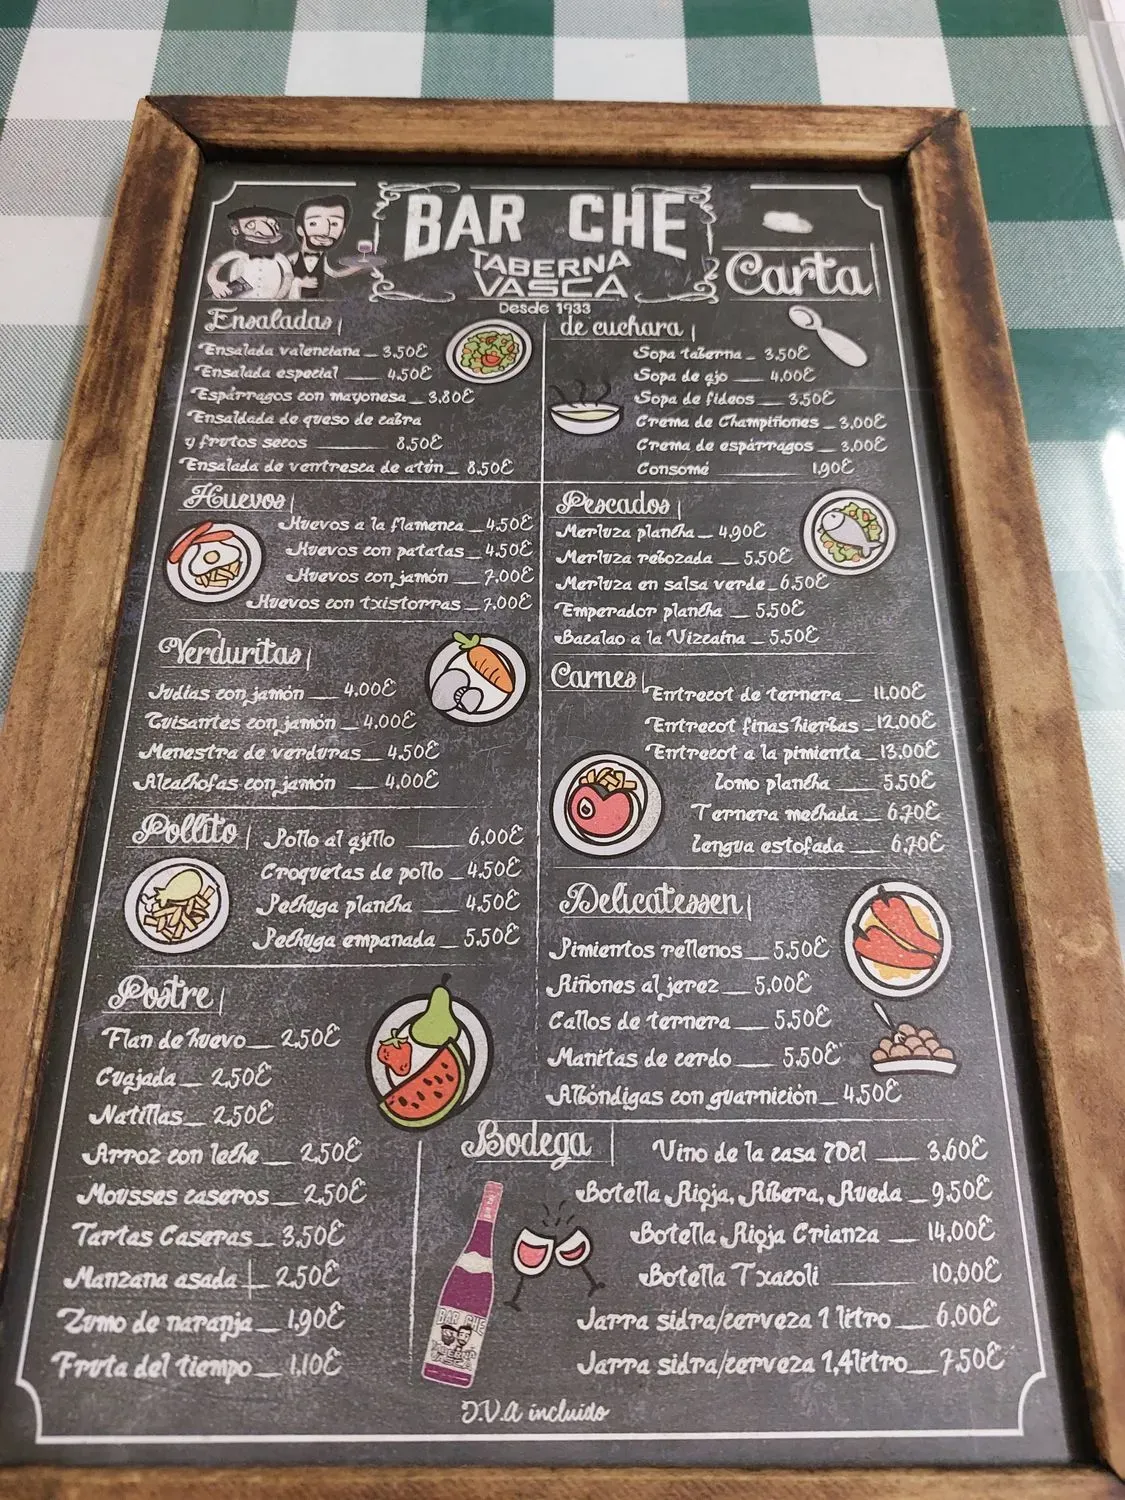 BAR CHE
TABERNA
VASCA
Desde 1933
Carta
Ensaladas
Ensalada valenciana 3,50€
Ensalada especial 4,50€
Espárragos con mayonesa 3,80€
Ensaldada de queso de cabra
y frutos secos 8,50€
Ensalada de ventresca de atún 8,50€
Huevos
Huevos a la flamenca 4,50€
Huevos con patatas 4,50€
Huevos con jamón 7,00€
Huevos con txistorras 7,00€
Verduritas
Judias con jamón 4,00€
Guisantes con jamón 4,00€
Menestra de verduras 4,50€
Alcachofas con jamón 4,00€
Pollito
Pollo al ajillo 6,00€
Croquetas de pollo 4,50€
Pechuga plancha 4,50€
Pechuga empanada 5,50€
Postre
Flan de huevo 2,50€
Cuajada 2,50€
Natillas 2,50€
Arroz con leche 2,50€
Mousses caseros 2,50€
Tartas Caseras 3,50€
Manzana asada 2,50€
Zumo de naranja 1,90€
Fruta del tiempo 1,10€
de cuchara
Sopa taberna 3,50€
Sopa de ajo 4,00€
Sopa de fideos 3,50€
Crema de Champiñones 3,00€
Crema de espárragos 3,00€
Consomé 1,90€
Pescados
Merluza plancha 4,90€
Merluza rebozada 5,50€
Merluza en salsa verde 6,50€
Emperador plancha 5,50€
Bacalao a la Vizcaina 5,50€
Carnes
Entrecot de ternera 11,00€
Entrecot finas hierbas 12,00€
Entrecot a la pimienta 13,00€
Lomo plancha 5,50€
Ternera mechada 6,70€
Lengua estofada 6,70€
Delicatessen
Pimientos rellenos 5,50€
Riñones al jerez 5,00€
Callos de ternera 5,50€
Manitas de cerdo 5,50€
Albóndigas con guarnición 4,50€
Bodega
Vino de la casa 70cl 3,60€
Botella Rioja, Ribera, Rueda 9,50€
Botella Rioja Crianza 14,00€
Botella Txacoli 10,00€
Jarra sidra/cerveza 1 litro 6,00€
Jarra sidra/cerveza 1,4litro 7,50€
BAR CHE
TABERNA
VASCA
I.V.A incluido